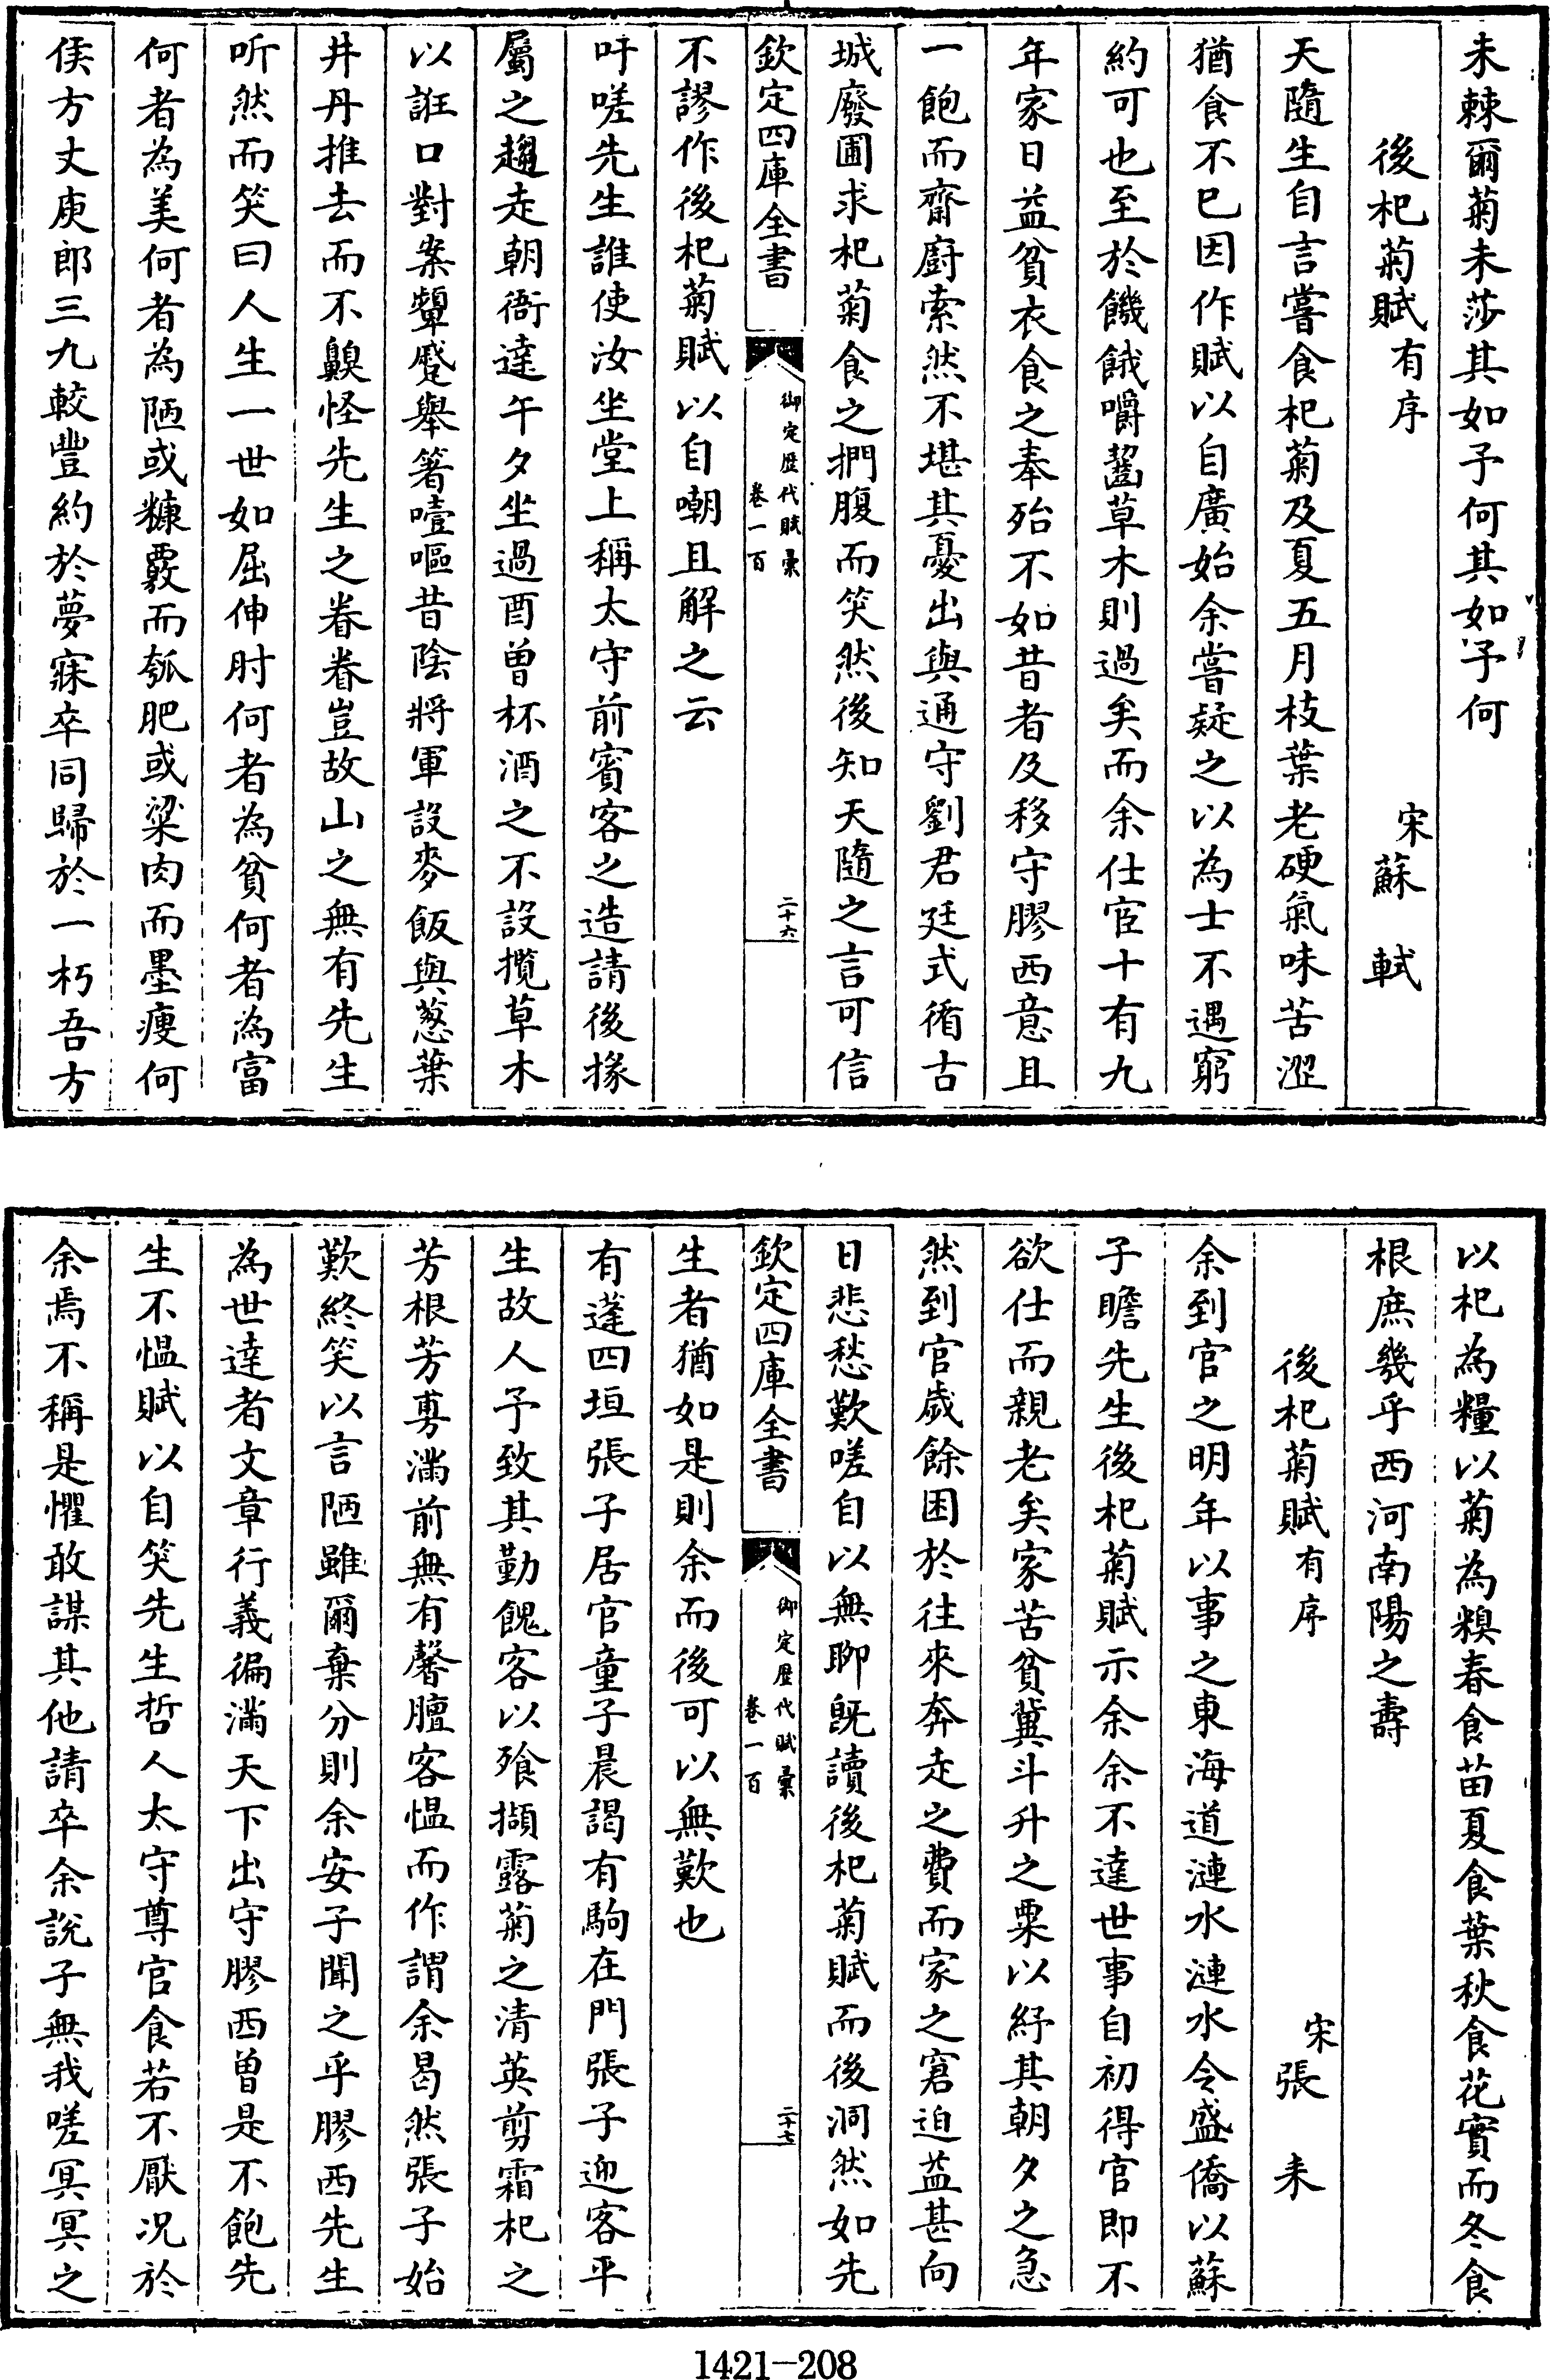 未棘爾菊未莎其如予何其如予何
後杞菊賦有序 宋蘇軾
天隨生自言嘗食杞菊及夏五月枝葉老硬氣味苦澀
猶食不已因作賦以自廣始余嘗疑之以為士不遇窮
約可也至於饑餓嚼齧草木則過矣而余仕宦十有九
年家日益貧衣食之奉殆不如昔者及移守膠西意且
一飽而齋廚索然不堪其憂出與通守劉君廷式循古
城廢圃求杞菊食之捫腹而笑然後知天隨之言可信
欽定四庫全書 御定歷代賦彙 卷一百 二十六
不謬作後杞菊賦以自嘲且解之云
吁嗟先生誰使汝坐堂上稱太守前賓客之造請後掾
屬之趨走朝衙達午夕坐過酉曾杯酒之不設攬草木
以誑口對案顰蹙舉箸噎嘔昔陰將軍設麥飯與蔥葉
井丹推去而不齅怪先生之眷眷豈故山之無有先生
听然而笑曰人生一世如屈伸肘何者為貧何者為富
何者為美何者為陋或糠覈而瓠肥或粱肉而墨瘦何
侯方丈庾郎三九較豐約於夢寐卒同歸於一朽吾方
以杞為糧以菊為糗春食苗夏食葉秋食花實而冬食
根庶幾乎西河南陽之壽
後杞菊賦有序 宋張耒
余到官之明年以事之東海道漣水漣水令盛僑以蘇
子瞻先生後杞菊賦示余余不達世事自初得官即不
欲仕而親老矣家苦貧冀斗升之粟以紓其朝夕之急
然到官歲餘困於往來奔走之費而家之窘迫益甚向
日悲愁歎嗟自以無聊既讀後杞菊賦而後洞然如先
欽定四庫全書 御定歷代賦彙 卷一百 二十七
生者猶如是則余而後可以無歎也
有蓬四垣張子居官童子晨謁有駒在門張子迎客平
生故人予致其勤餽客以飱擷露菊之清英剪霜杞之
芳根芳荑滿前無有馨膻客慍而作謂余曷然張子始
歎終笑以言陋雖爾棄分則余安子聞之乎膠西先生
為世達者文章行義徧滿天下出守膠西曾是不飽先
生不慍賦以自笑先生哲人太守尊官食若不厭况於
余焉不稱是懼敢謀其他請卒余說子無我嗟冥冥之
1421—208